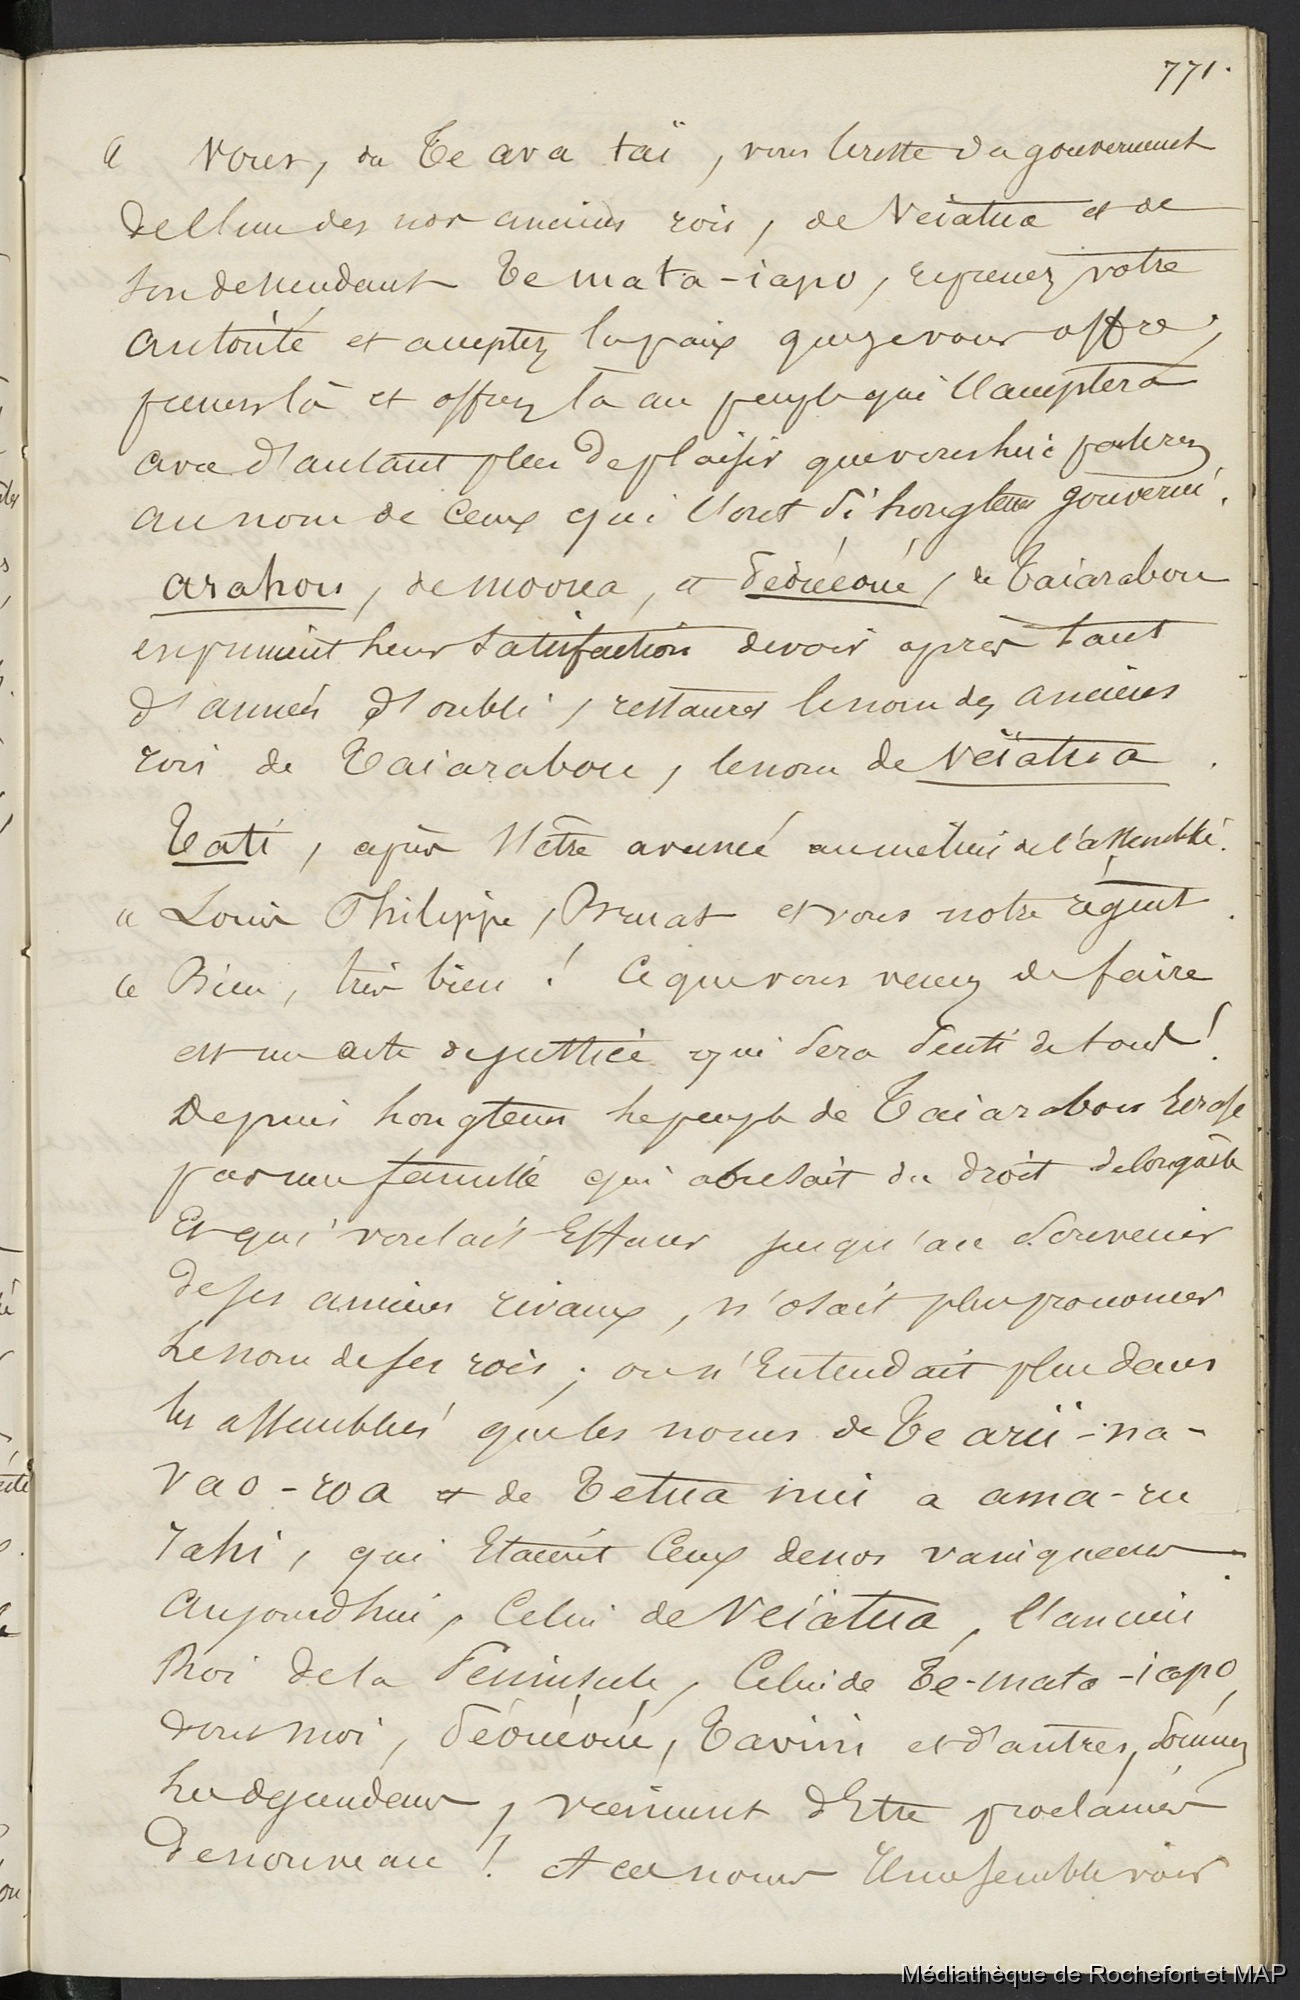 771.
« Vous, du Te ava taï, vous le reste du gouvernement
de l'un des nos anciens rois, de Veiatua et de
son descendant Te mata-iapo, reprenez votre
autorité et acceptez la paix que je vous offre ;
prenez là et offrez là au peuple qui l'acceptera
avec d'autant plus de plaisir que vous lui parlerez
au nom de ceux qui l'ont si longtems gouverné.
Arahou, de moorea, et Déouéoué, de Taiarabou
expriment leur satisfaction de voir après tant
d'années d'oubli, restaurer le nom des anciens
rois de Taiarabou, le nom de Veïatua.
Tati, après s'être avancé au milieu de l'assemblée.
« Louis Philippe, Bruat et vous notre régent.
« Bien, très bien ! Ce que vous venez de faire
est un acte de justice qui sera senti de tous !
Depuis longtems le peuple de Taiarabou écrasé
par une famille qui abusait du droit de conquête
et qui voulait effacer jusqu'au souvenir
de ses anciens rivaux, n'osait plus prononcer
le nom de ses rois ; on n'entendait plus dans
les assemblées que les noms de Te arii-na-
vao-roa et de Tetua nui a ama-ru
rahi, qui étaient ceux de nos vainqueurs.
Aujourd'hui, celui de Veiatua, l'ancien
Roi de la Péninsule, celui de Te-mata-iapo,
dont moi, Déouéoué, Tavini et d'autres, sommes
les descendans, viennent d'être proclamés
de nouveau ! et ces noms il me semble voir
Médiathèque de Rochefort et MAP